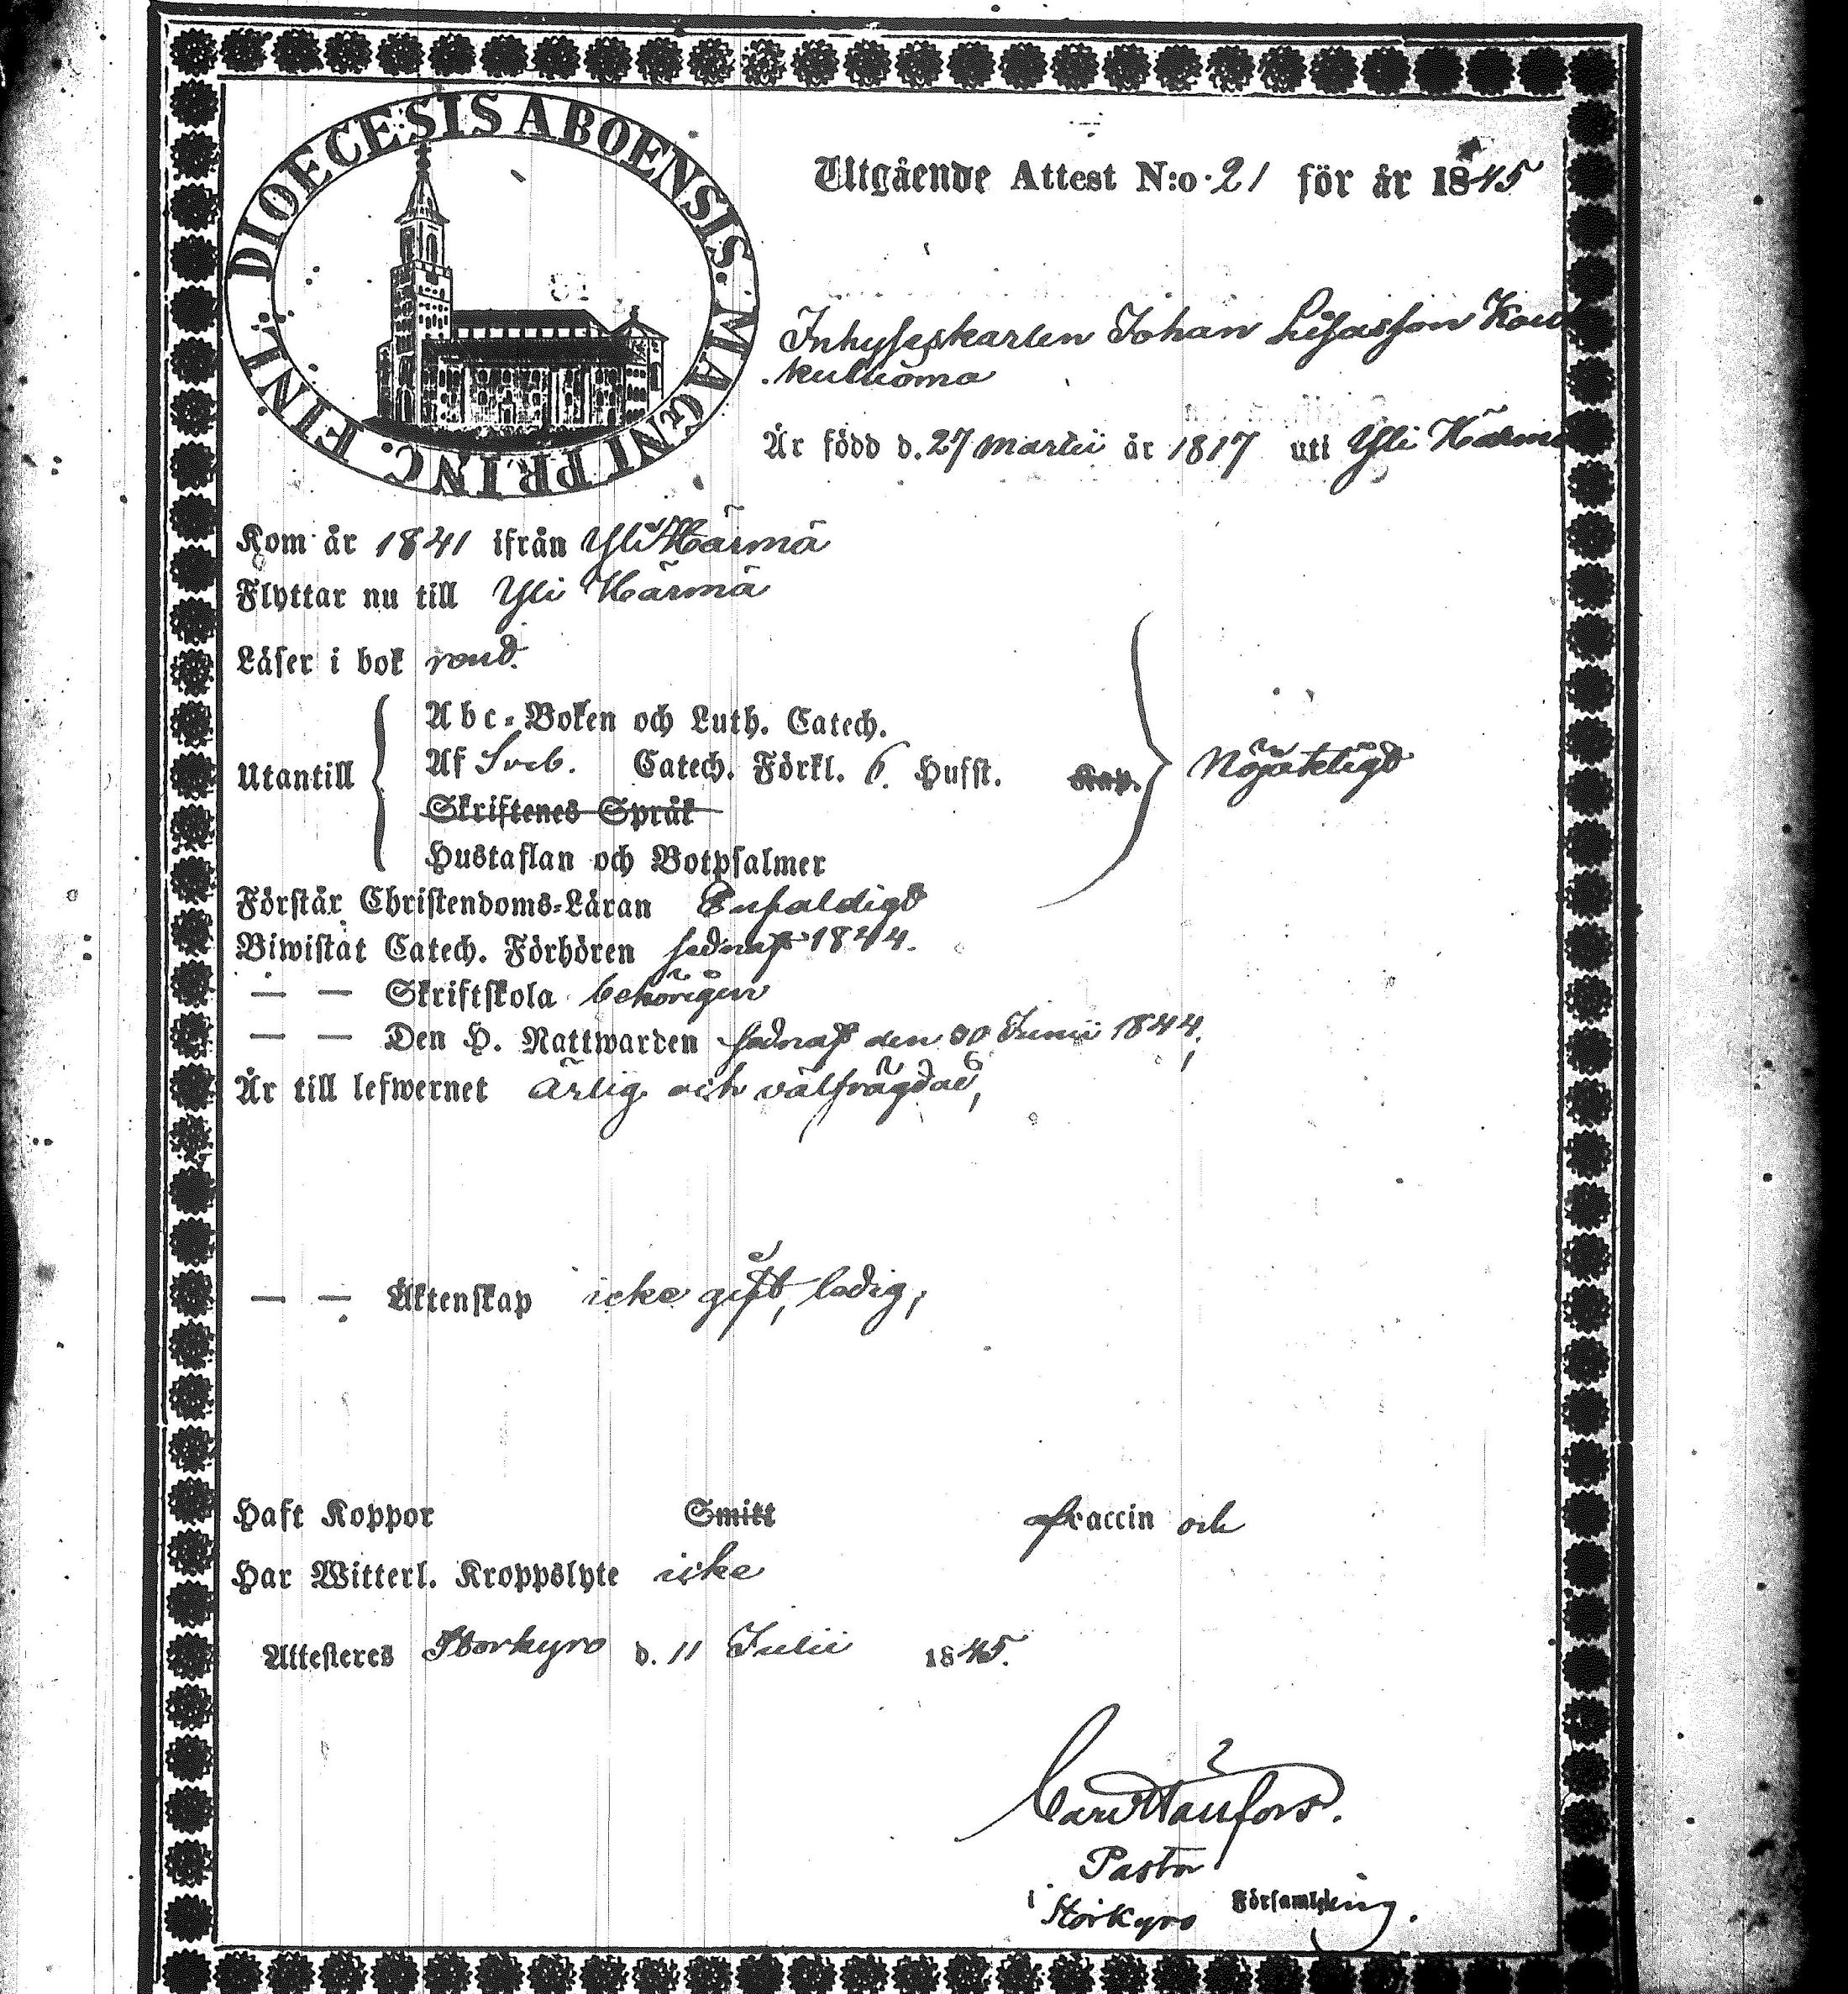 DIOECESIS ABOENSIS. MAGNI PRINC. FINL.
Utgående Attest N:o 21 för år 1845
Inhyseskarlen Johan
Är född d. 27 Martii år 1817 uti Yli Härmä
Kom år 1841 ifrån Yli Härmä
Flyttar nu till Yli Härmä
Läser i bok
Utantill
Abc-Boken och Luth. Catech.
Af Sveb. Catech. Förkl. 6 Hufst. Kap.
Skriftenes Språk
Hustaflan och Botpsalmer
Nöjaktigt
Förstår Christendoms-Läran Enfaldigt
Biwistat Catech. Förhören sednast 1844.
— — Skriftskola behörigen
— — Den H. Nattwarden sednast den 30 Junii 1844,
Är till lefwernet ärlig och välfrägdad,
— — Äktenskap icke gift, ledig,
Haft Koppor Smitt vaccin och
Har Witterl. Kroppslyte icke
Attesteres Storkyro d. 11 Julii 1845.
Pastor
i Storkyro Församling.